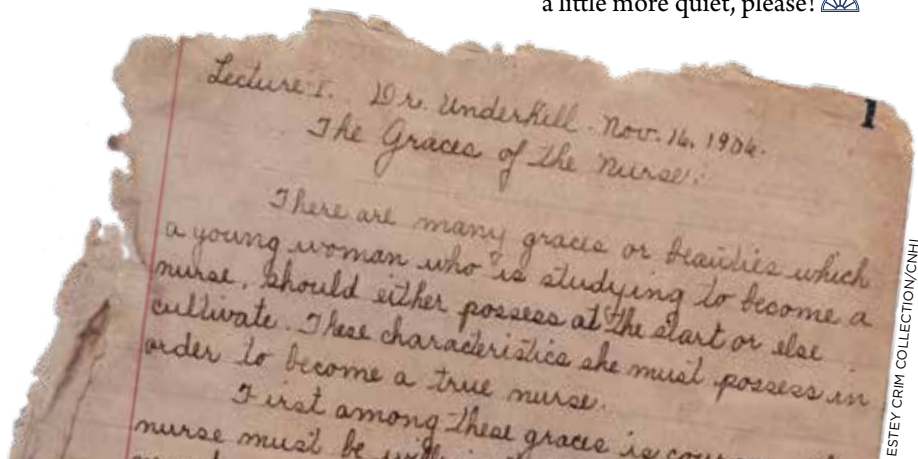 a little more quiet, please!
1
Lecture I. Dr. Underhill. Nov. 16, 1906.
The Graces of the Nurse.
There are many graces or beauties which
a young woman who is studying to become a
nurse, should either possess at the start or else
cultivate. These characteristics she must possess in
order to become a true nurse.
First among these graces is
nurse must be
ESTEY CRIM COLLECTION/CNHI